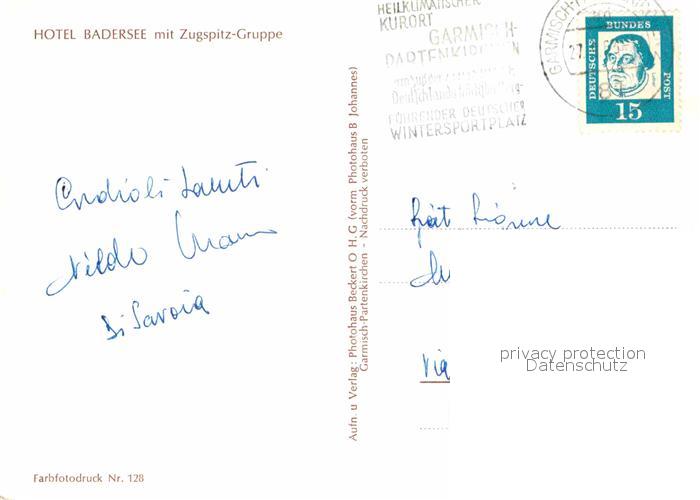 HOTEL BADERSEE mit Zugspitz-Gruppe
Cordiali saluti
Nildo
Di Savoia
Farbfotodruck Nr. 128
Aufn. u Verlag: Photohaus Beckert O H.G (vorm Photohaus B Johannes)
Garmisch-Partenkirchen - Nachdruck verboten
HEILKLIMATISCHER
KURORT
GARMISCH-
PARTENKIRCHEN
FÜHRENDER DEUTSCHER
WINTERSPORTPLATZ
GARMISCH-
27.
DEUTSCHE BUNDES POST
15
Via
privacy protection
Datenschutz